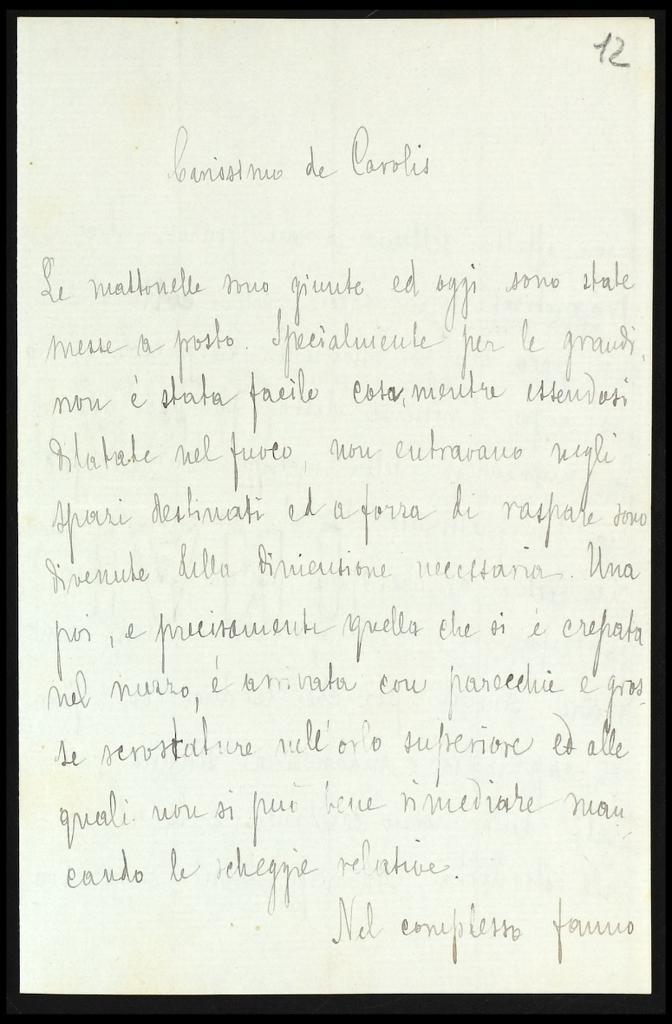 12
Carissimo de Carolis
Le mattonelle sono giunte ed oggi sono state
messe a posto. Specialmente per le grandi,
non è stata facile cosa, mentre essendosi
dilatate nel fuoco, non entravano negli
spazi destinati ed a forza di raspare sono
divenute della dimensione necessaria. Una
poi, e precisamente quella che si è crepata
nel mezzo, è arrivata con parecchie e gros-
se scrostature nell'orlo superiore ed alle
quali non si può bene rimediare man-
cando le scheggie relative.
Nel complesso fanno